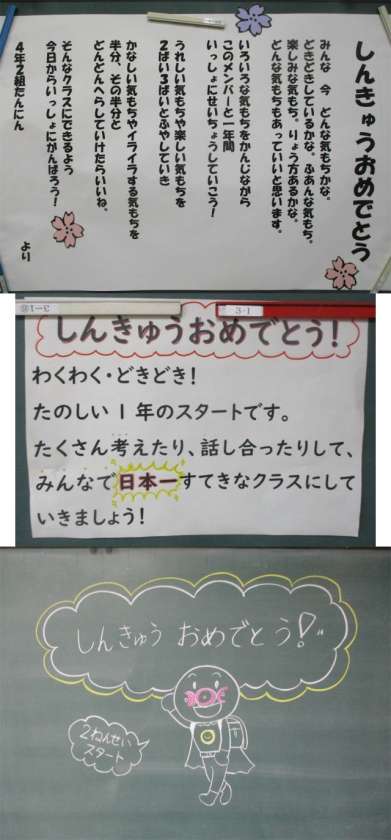 しんきゅうおめでとう
みんな　今　どんな気もちかな。
どきどきしているかな。ふあんな気もち、
楽しみな気もち、りょう方あるかな。
どんな気もちもあっていいと思います。
いろいろな気もちをかんじながら
このメンバーと一年間
いっしょにせいちょうしていこう！
うれしい気もちや楽しい気もちを
2ばい3ばいとふやしていき
かなしい気もちやイライラする気もちを
半分、その半分と
どんどんへらしていけたらいいね。
そんなクラスにできるよう
今日からいっしょにがんばろう！
4年2組たんにん　　より
3-1
しんきゅうおめでとう！
わくわく・どきどき！
たのしい1年のスタートです。
たくさん考えたり、話し合ったりして、
みんなで日本一すてきなクラスにして
いきましょう！
しんきゅう おめでとう！！
2ねんせい
スタート